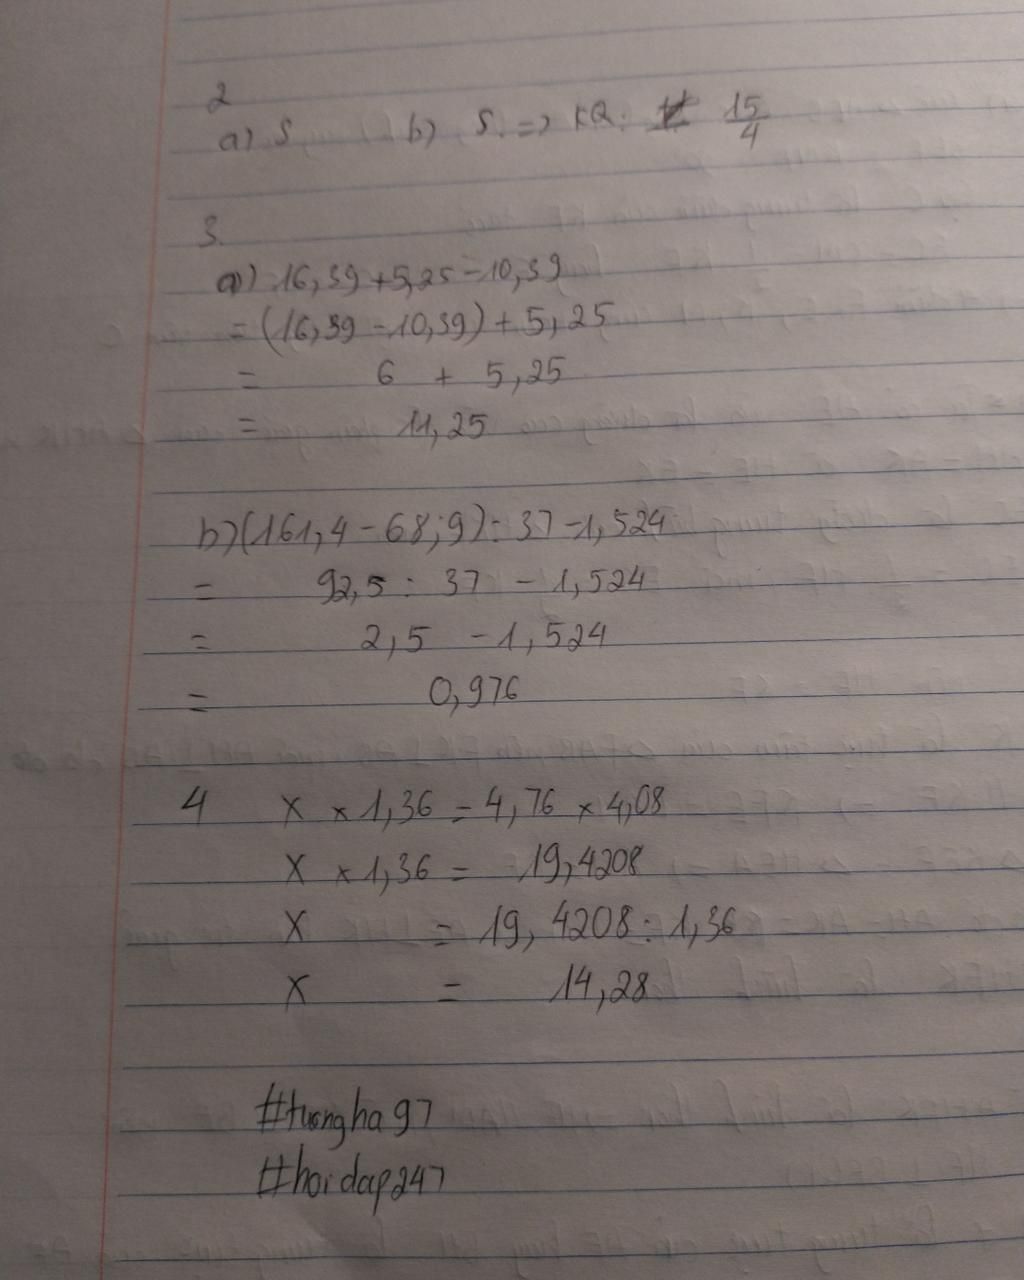 2
a) S b) S. => KQ: 15/4
3.
a) 16,39 + 5,25 - 10,39
= (16,39 - 10,39) + 5,25
= 6 + 5,25
= 11,25
b) (161,4 - 68,9) : 37 - 1,524
= 92,5 : 37 - 1,524
= 2,5 - 1,524
= 0,976
4 X × 1,36 = 4,76 × 4,08
X × 1,36 = 19,4208
X = 19,4208 : 1,36
X = 14,28
#tuongha97
#hoidap247